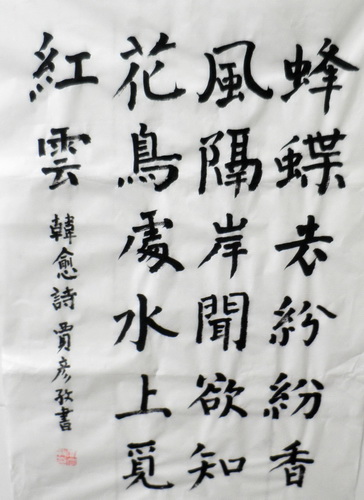 蜂蝶去紛紛香
風隔岸聞欲知
花鳥處水上覓
紅雲
韓愈詩賈彦孜書